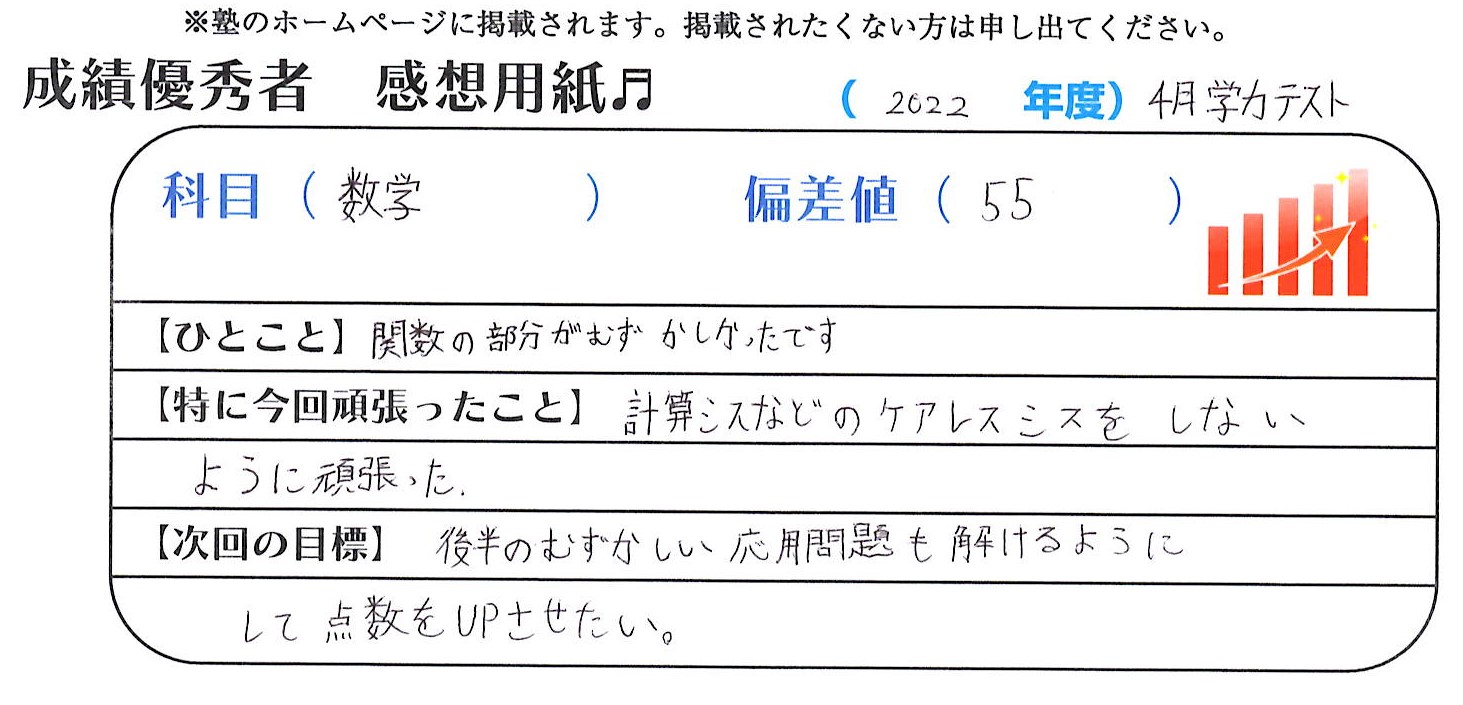 ※塾のホームページに掲載されます。掲載されたくない方は申し出てください。
成績優秀者 感想用紙♬ (2022 年度) 4月学力テスト
科目(数学) 偏差値(55)
【ひとこと】関数の部分がむずかしかったです
【特に今回頑張ったこと】計算ミスなどのケアレスミスをしない
ように頑張った.
【次回の目標】後半のむずかしい応用問題も解けるように
して点数をUPさせたい。